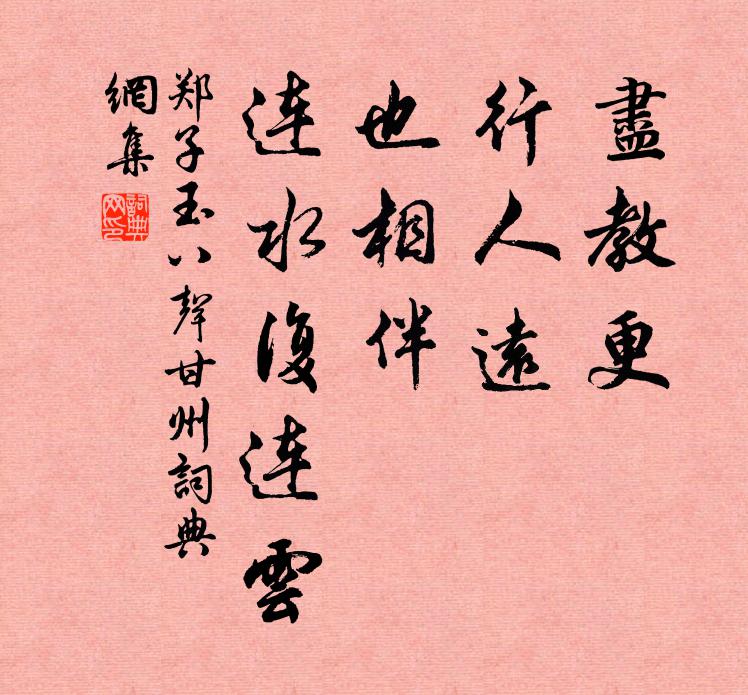 盡教更
行人遠
也相伴
連水復連雲
郑子玉八聲甘州詞典
網集
詞典網印